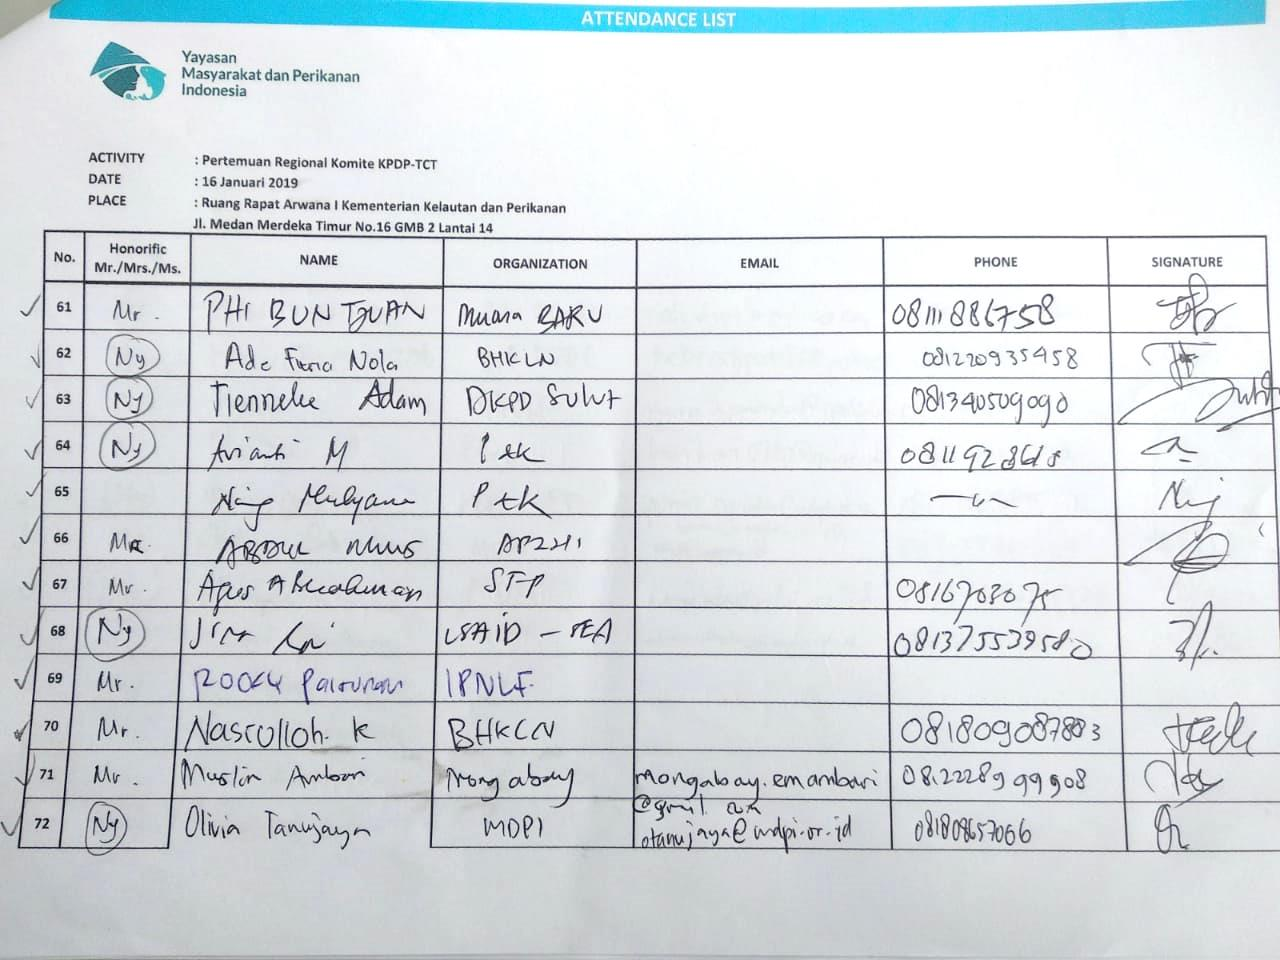 ATTENDANCE LIST
Yayasan
Masyarakat dan Perikanan
Indonesia
ACTIVITY : Pertemuan Regional Komite KPDP-TCT
DATE : 16 Januari 2019
PLACE : Ruang Rapat Arwana I Kementerian Kelautan dan Perikanan
Jl. Medan Merdeka Timur No.16 GMB 2 Lantai 14
No. Honorific Mr./Mrs./Ms. NAME ORGANIZATION EMAIL PHONE SIGNATURE
61 Mr. PHI BUN TJUAN Muara BARU 08111886758
62 Ny Ade Fitria Nola BHKLN 081220935458
63 Ny Tienneke Adam DKPD Sulut 081340509090
64 Ny Arianti M
65 Mulyana
66 Mr. ABDUL AP2HI
67 Mr. Agus ABdurahman STP 0816703075
68 Ny USAID - SEA 081375539580
69 Mr. ROCKY IPNLF
70 Mr. Nasrulloh. K BHKLN
71 Mr Muslin Ambari Mongabay mongabay.emambari 081222899908
@gmail.com
72 Ny Olivia Tanujaya MDPI otanujaya@mdpi.or.id 081808657066